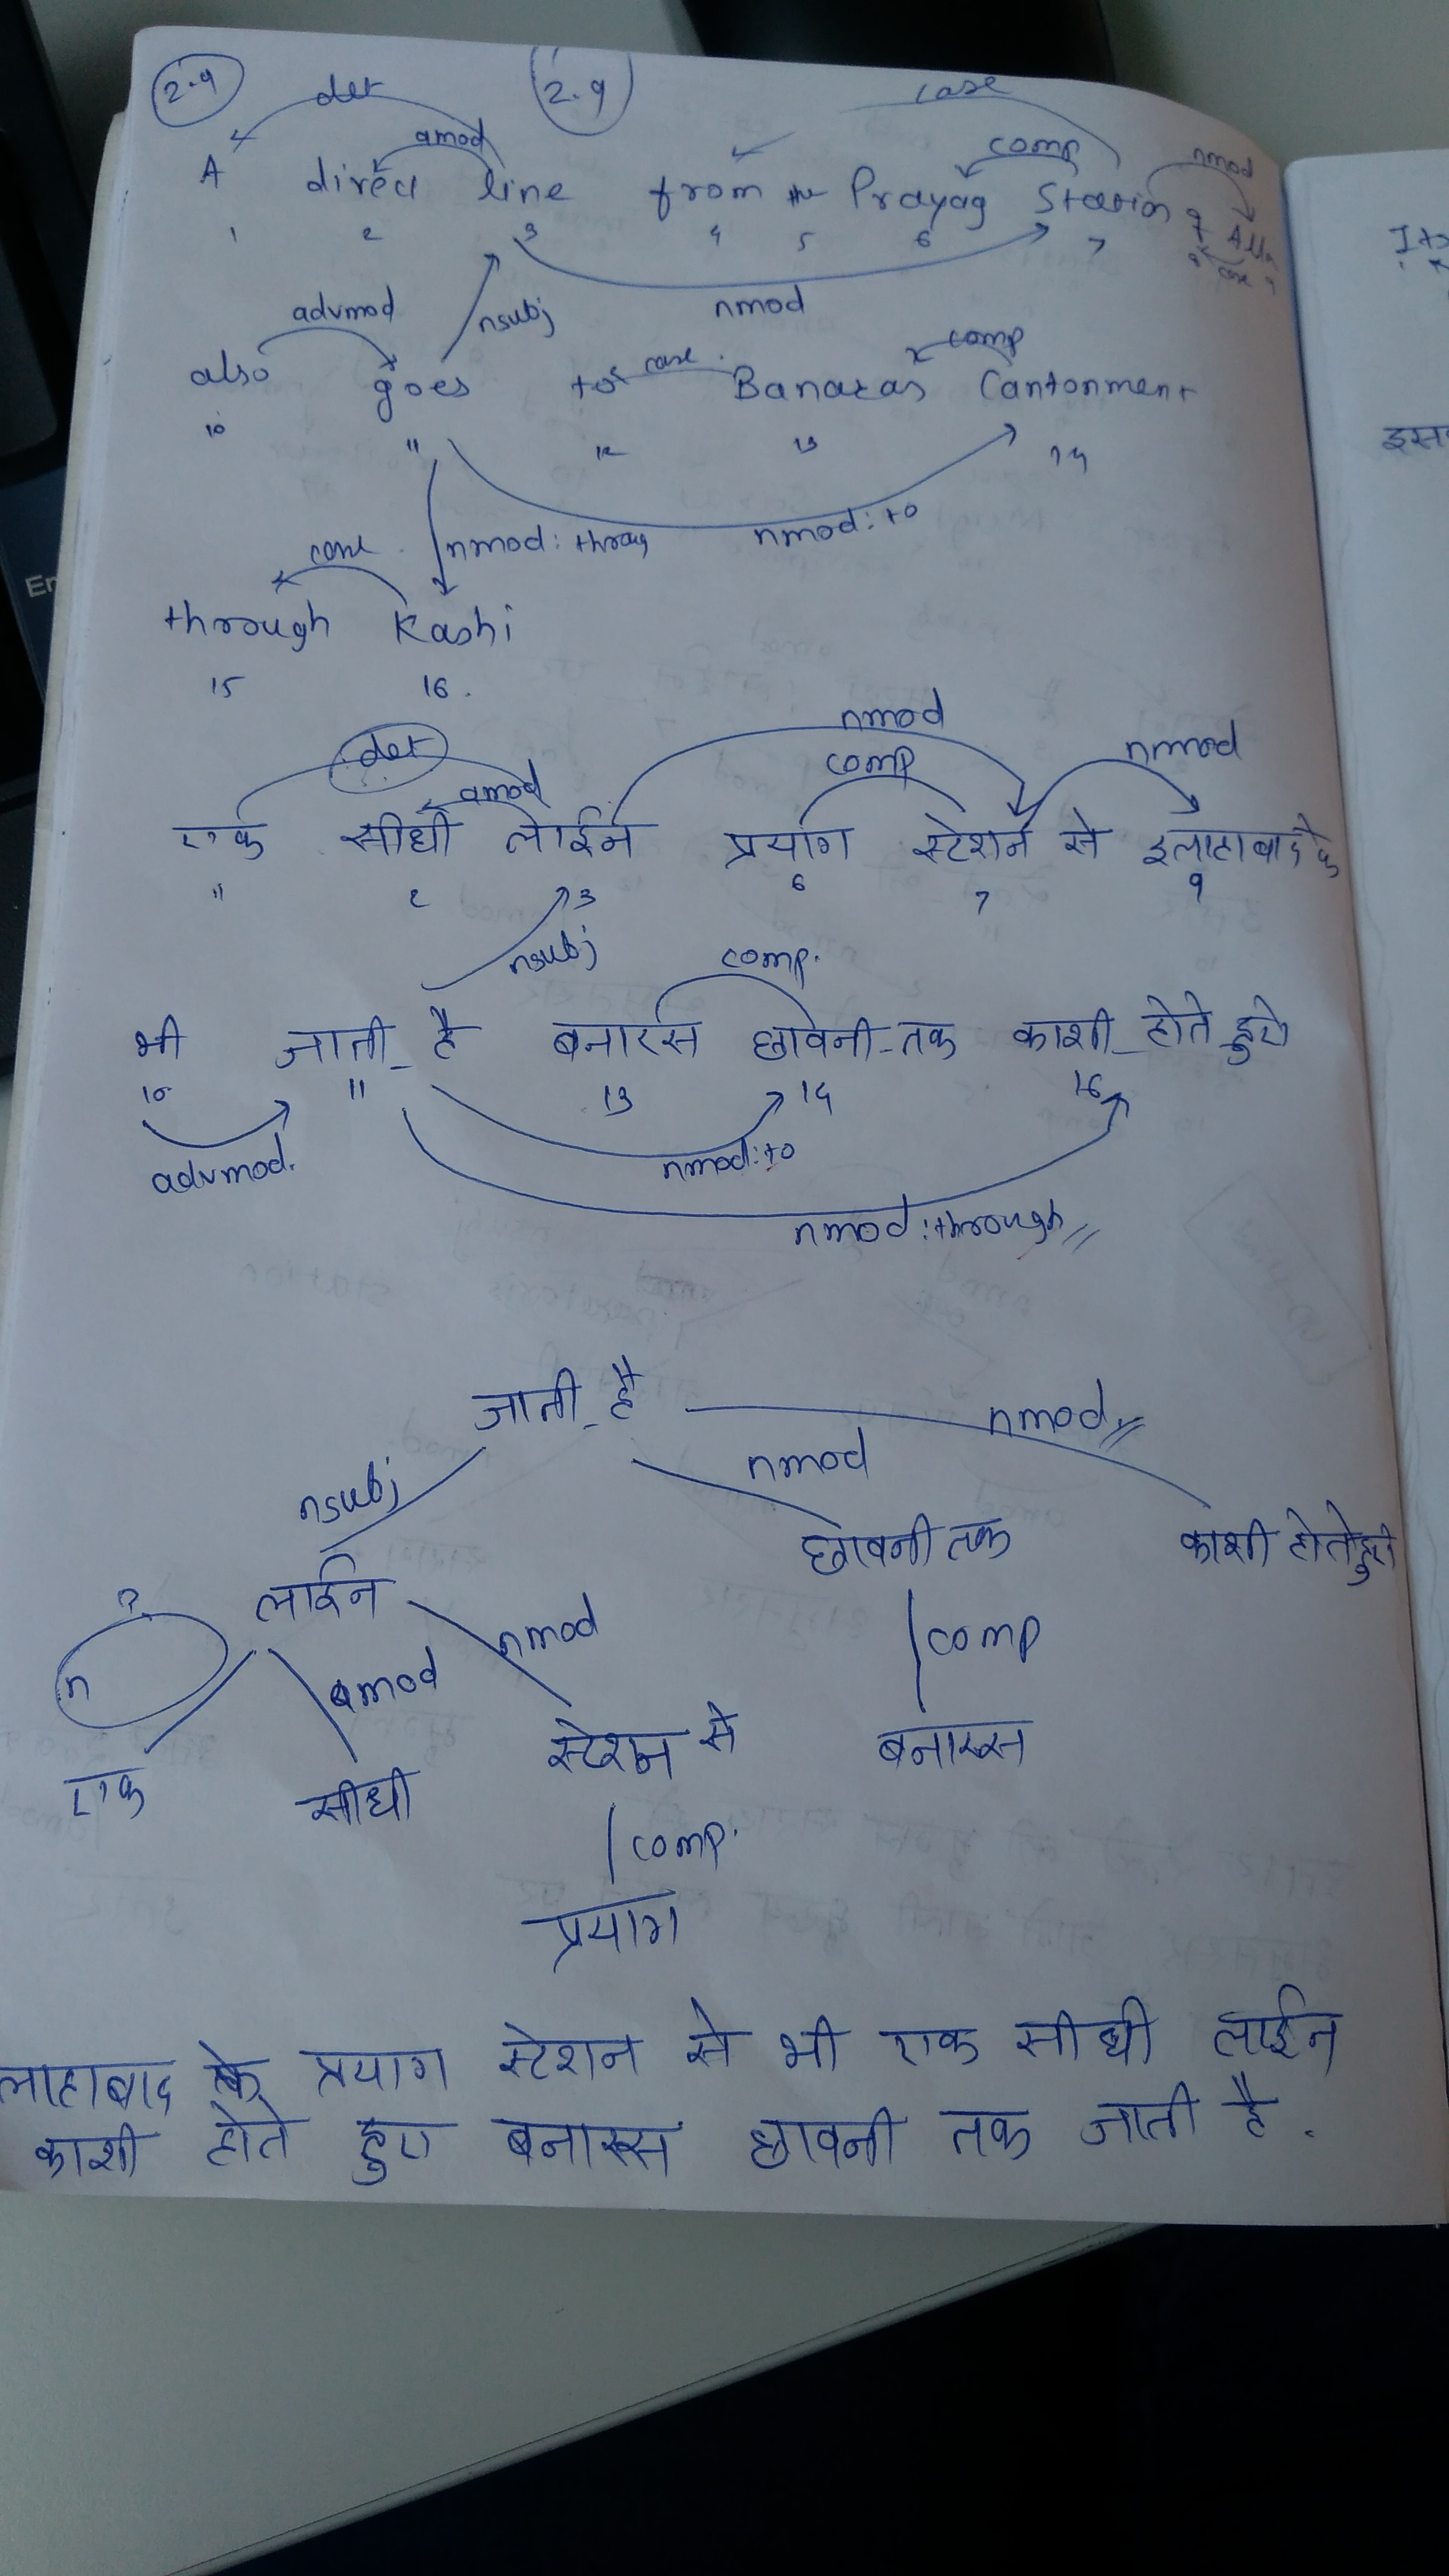 2.9 det 2.9 case
amod comp nmod
A direct line from the Prayag Station of
1 2 3 4 5 6 7 case 9
advmod nsubj nmod
case comp
also goes to Banaras Cantonment
10 11 12 13 14
case nmod: nmod: to
through Kashi
15 16.
det nmod
amod comp nmod
एक सीधी लाईन प्रयाग स्टेशन से इलाहाबाद के
11 2 3 6 7 9
nsubj comp.
भी जाती_है बनारस छावनी_तक काशी_होते_हुए
10 11 13 14 16
advmod. nmod:to
nmod:through
जाती_है nmod
nsubj nmod
छावनी तक काशी होते हुए
? लाईन
n amod nmod comp
स्टेशन से बनारस
एक सीधी
comp.
प्रयाग
लाहाबाद के प्रयाग स्टेशन से भी एक सीधी लाईन
काशी होते हुए बनारस छावनी तक जाती है.
इस